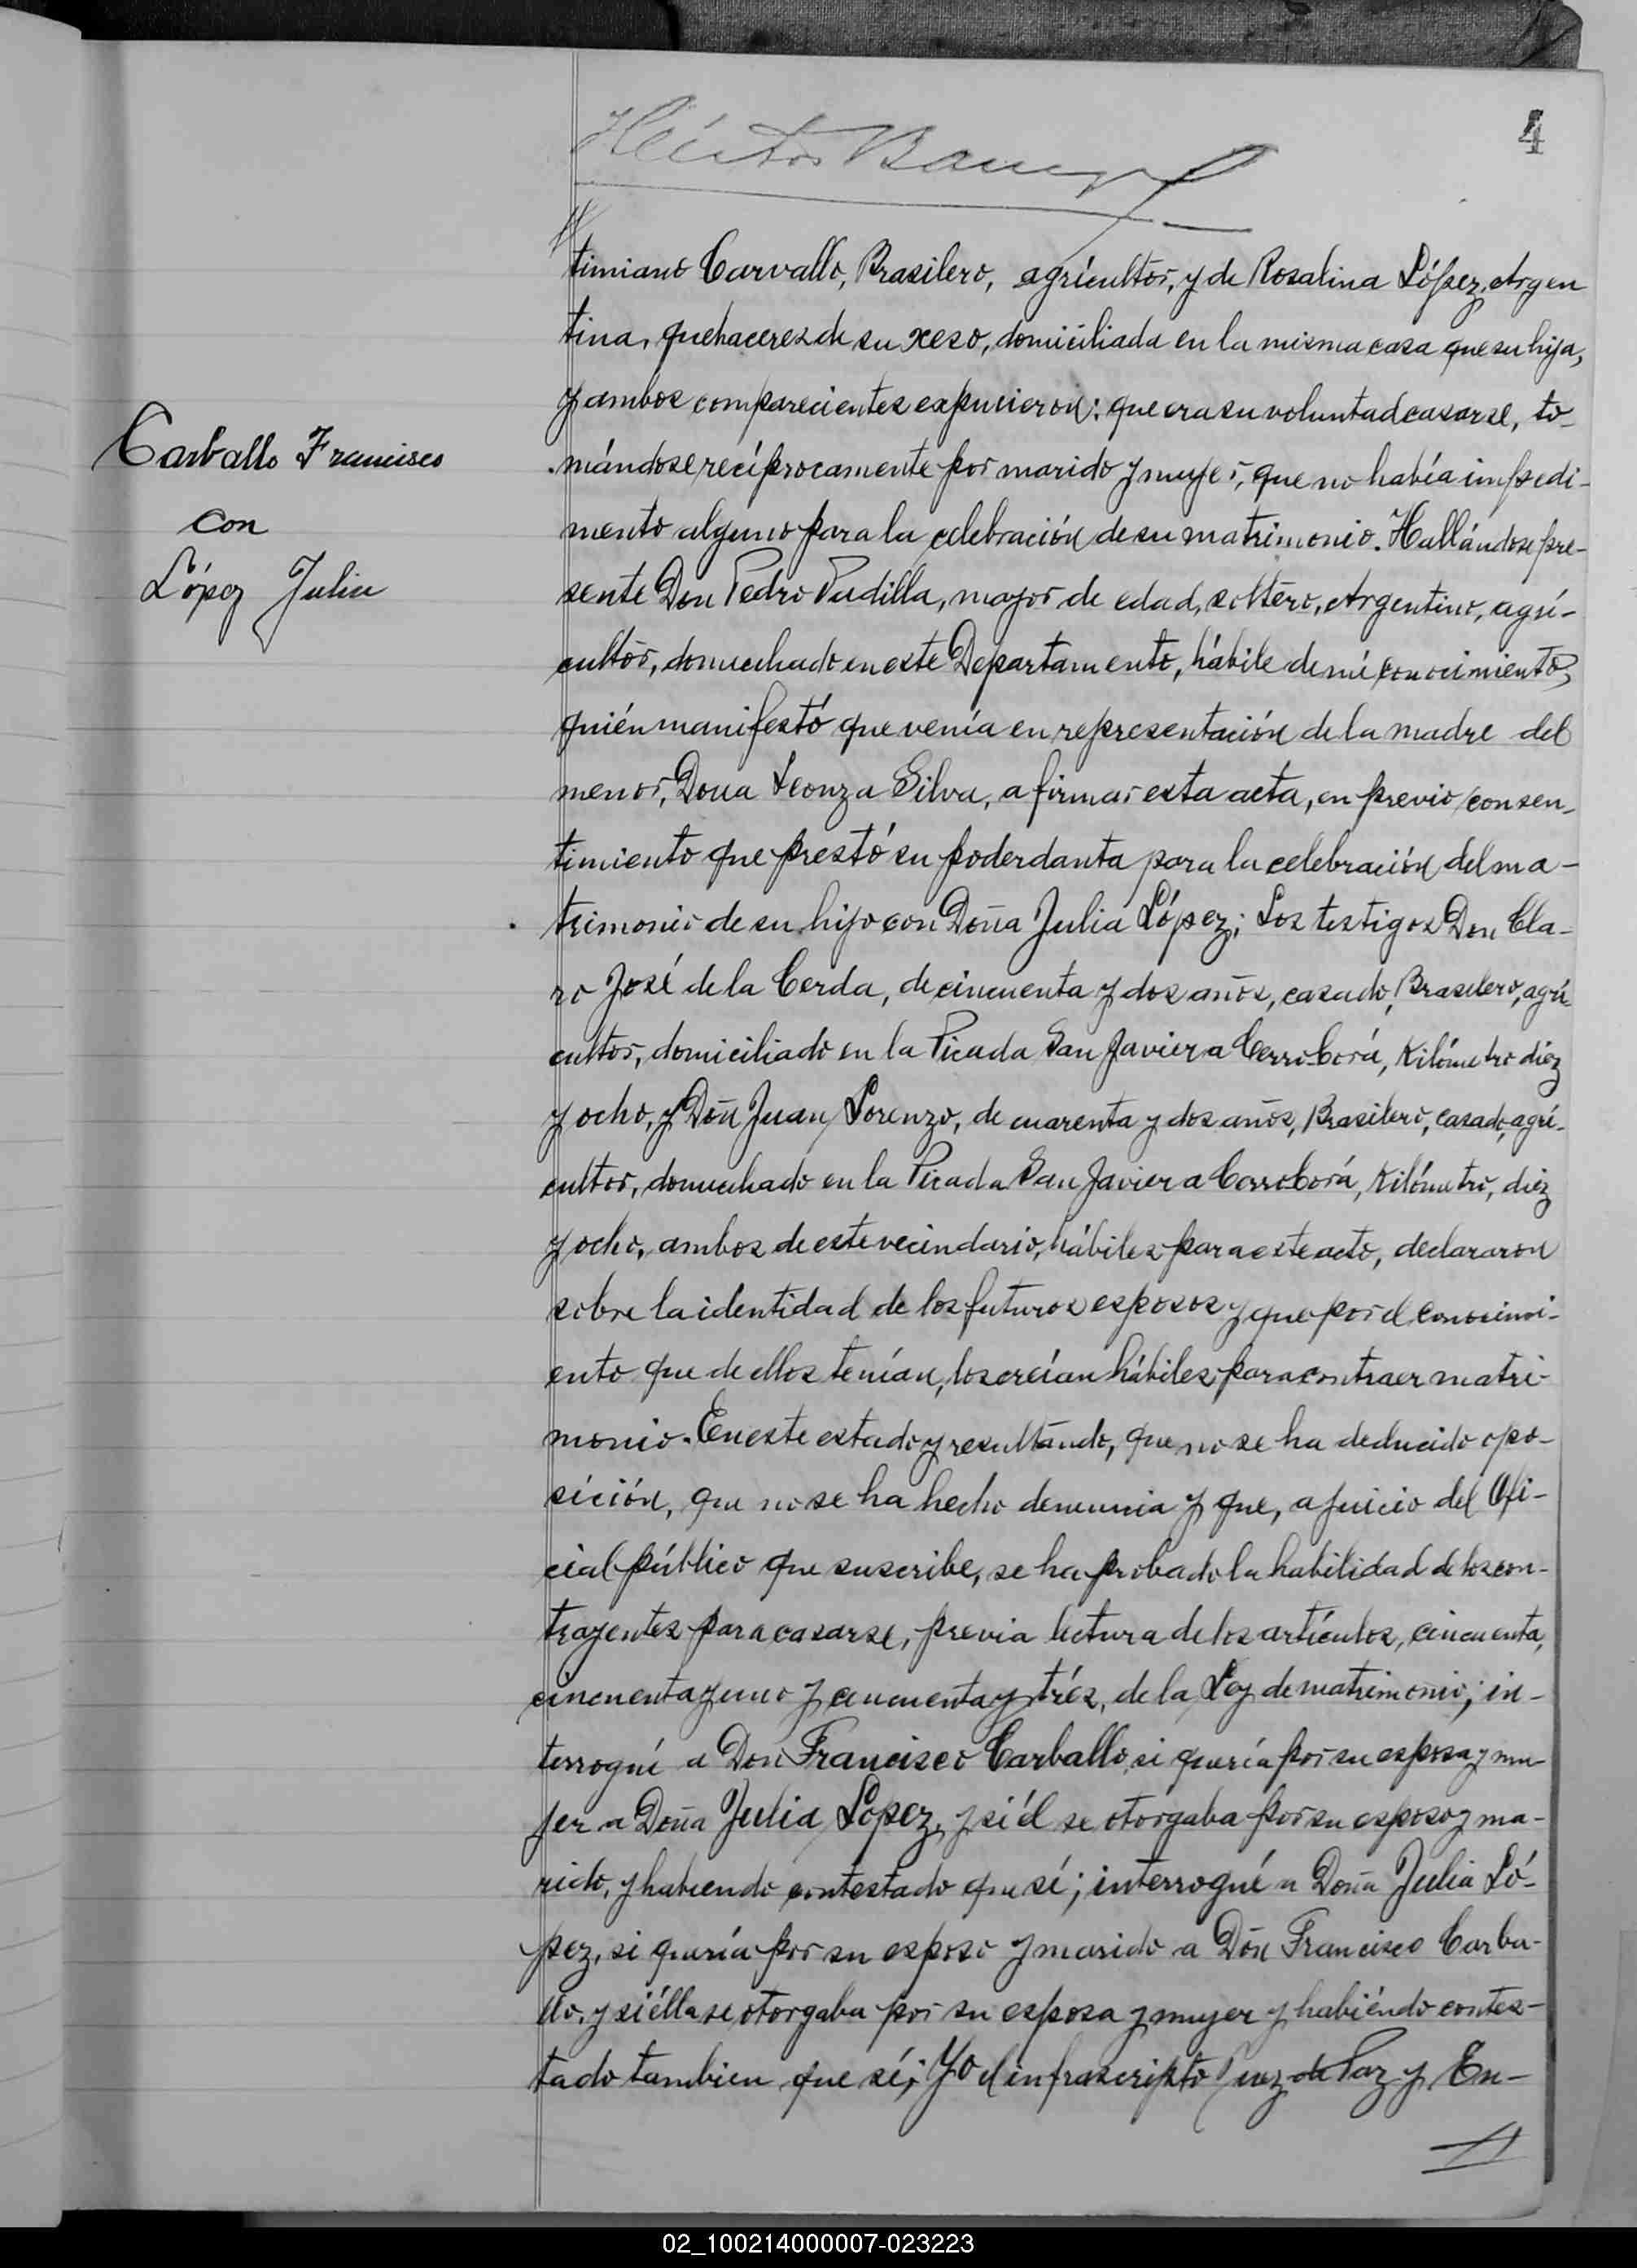 4
Héctor
Carballo Francisco
con
López Julia
timiano Carvallo, Brasilero, agrícultor, y de Rosalina López, Argen
tina, quehaceres de su xeso, domiciliada en la misma casa que su hija,
y ambos comparecientes expucieron: que era su voluntad casarse, to-
mándose recíprocamente por marido y mujer, que no había impedi-
mento alguno para la celebración de su matrimonio. Hallándose pre-
sente Don Pedro Padilla, mayor de edad, soltero, Argentino, agrí-
cultor, domiciliado en este Departamento, hábile de mi conocimiento,
quién manifestó que venía en representación de la madre del
menor, Doña Leonza Silva, a firmar esta acta, en previo consen-
timiento que prestó su poderdanta para la celebración del ma-
trimonio de su hijo con Doña Julia López; Los testigos Don Cla-
ro José de la Cerda, de cincuenta y dos años, casado, Brasilero, agrí-
cultor, domiciliado en la Picada San Javier a Cerro Corá, Kilómetro diéz
y ocho, y Don Juan Lorenzo, de cuarenta y dos años, Brasilero, casado, agrí-
cultor, domiciliado en la Picada San Javier a Cerro Corá, Kilómetro, diez
y ocho, ambos de este vecindario, hábiles para este acto, declararon
sobre la identidad de los futuros esposos y que por el conocimi-
ento que de ellos tenían, los creían hábiles para contraer matri-
monio. En este estado y resultando, que no se ha deducido opo-
sición, que no se ha hecho denuncia y que, a juicio del Ofi-
cial público que suscribe, se ha probado la habilidad de los con-
trayentes para casarse, previa lectura de los artículos, cincuenta,
cincuenta y uno y cincuenta y trés, de la Ley de matrimonio; in-
terrogué a Don Francisco Carballo, si quería por su esposa y mu-
jer a Doña Julia López, y si él se otorgaba por su esposo y ma-
rido, y habiendo contestado que sí; interrogué a Doña Julia Ló-
pez, si quería por su esposo y marido a Dón Francisco Carba-
llo, y si élla se otorgaba por su esposa y mujer y habiéndo contes-
tado tambien que sí; Yo el infrascripto Juez de Paz y En-
02_100214000007-023223